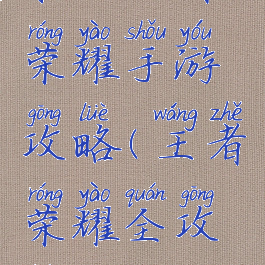 róng yào shǒu yóu
荣耀手游
gōng lüè wáng zhě
攻略(王者
róng yào quán gōng
荣耀全攻